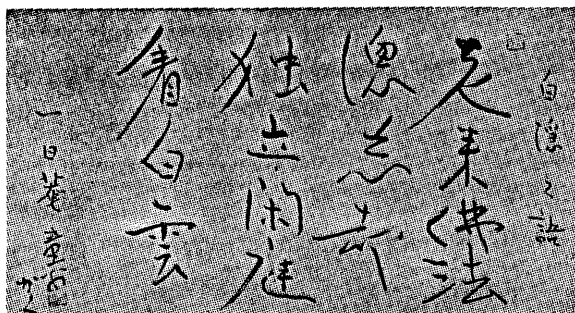 白隠之語
老来佛法
總忘却
独立閑庭
看白雲
一日菴